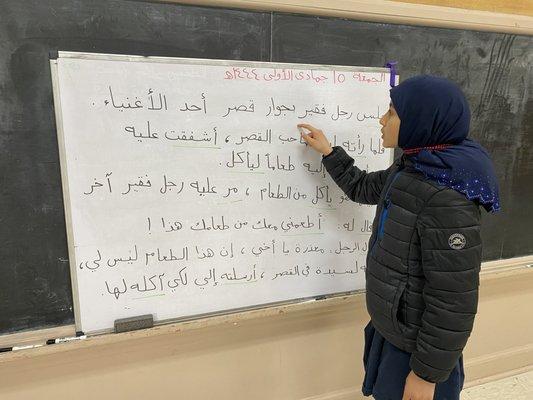 الجمعة ١٥ جمادى الأولى ١٤٤٤هـ
جلس رجل فقير بجوار قصر أحد الأغنياء.
فلما رأته صاحب القصر، أشفقت عليه
إليه طعاماً ليأكل.
يأكل من الطعام، مر عليه رجل فقير آخر
قال له: أطعمني معك من طعامك هذا!
الرجل: معذرة يا أخي، إن هذا الطعام ليس لي،
لسيدة في القصر، أرسلته إلي لكي آكله لها.